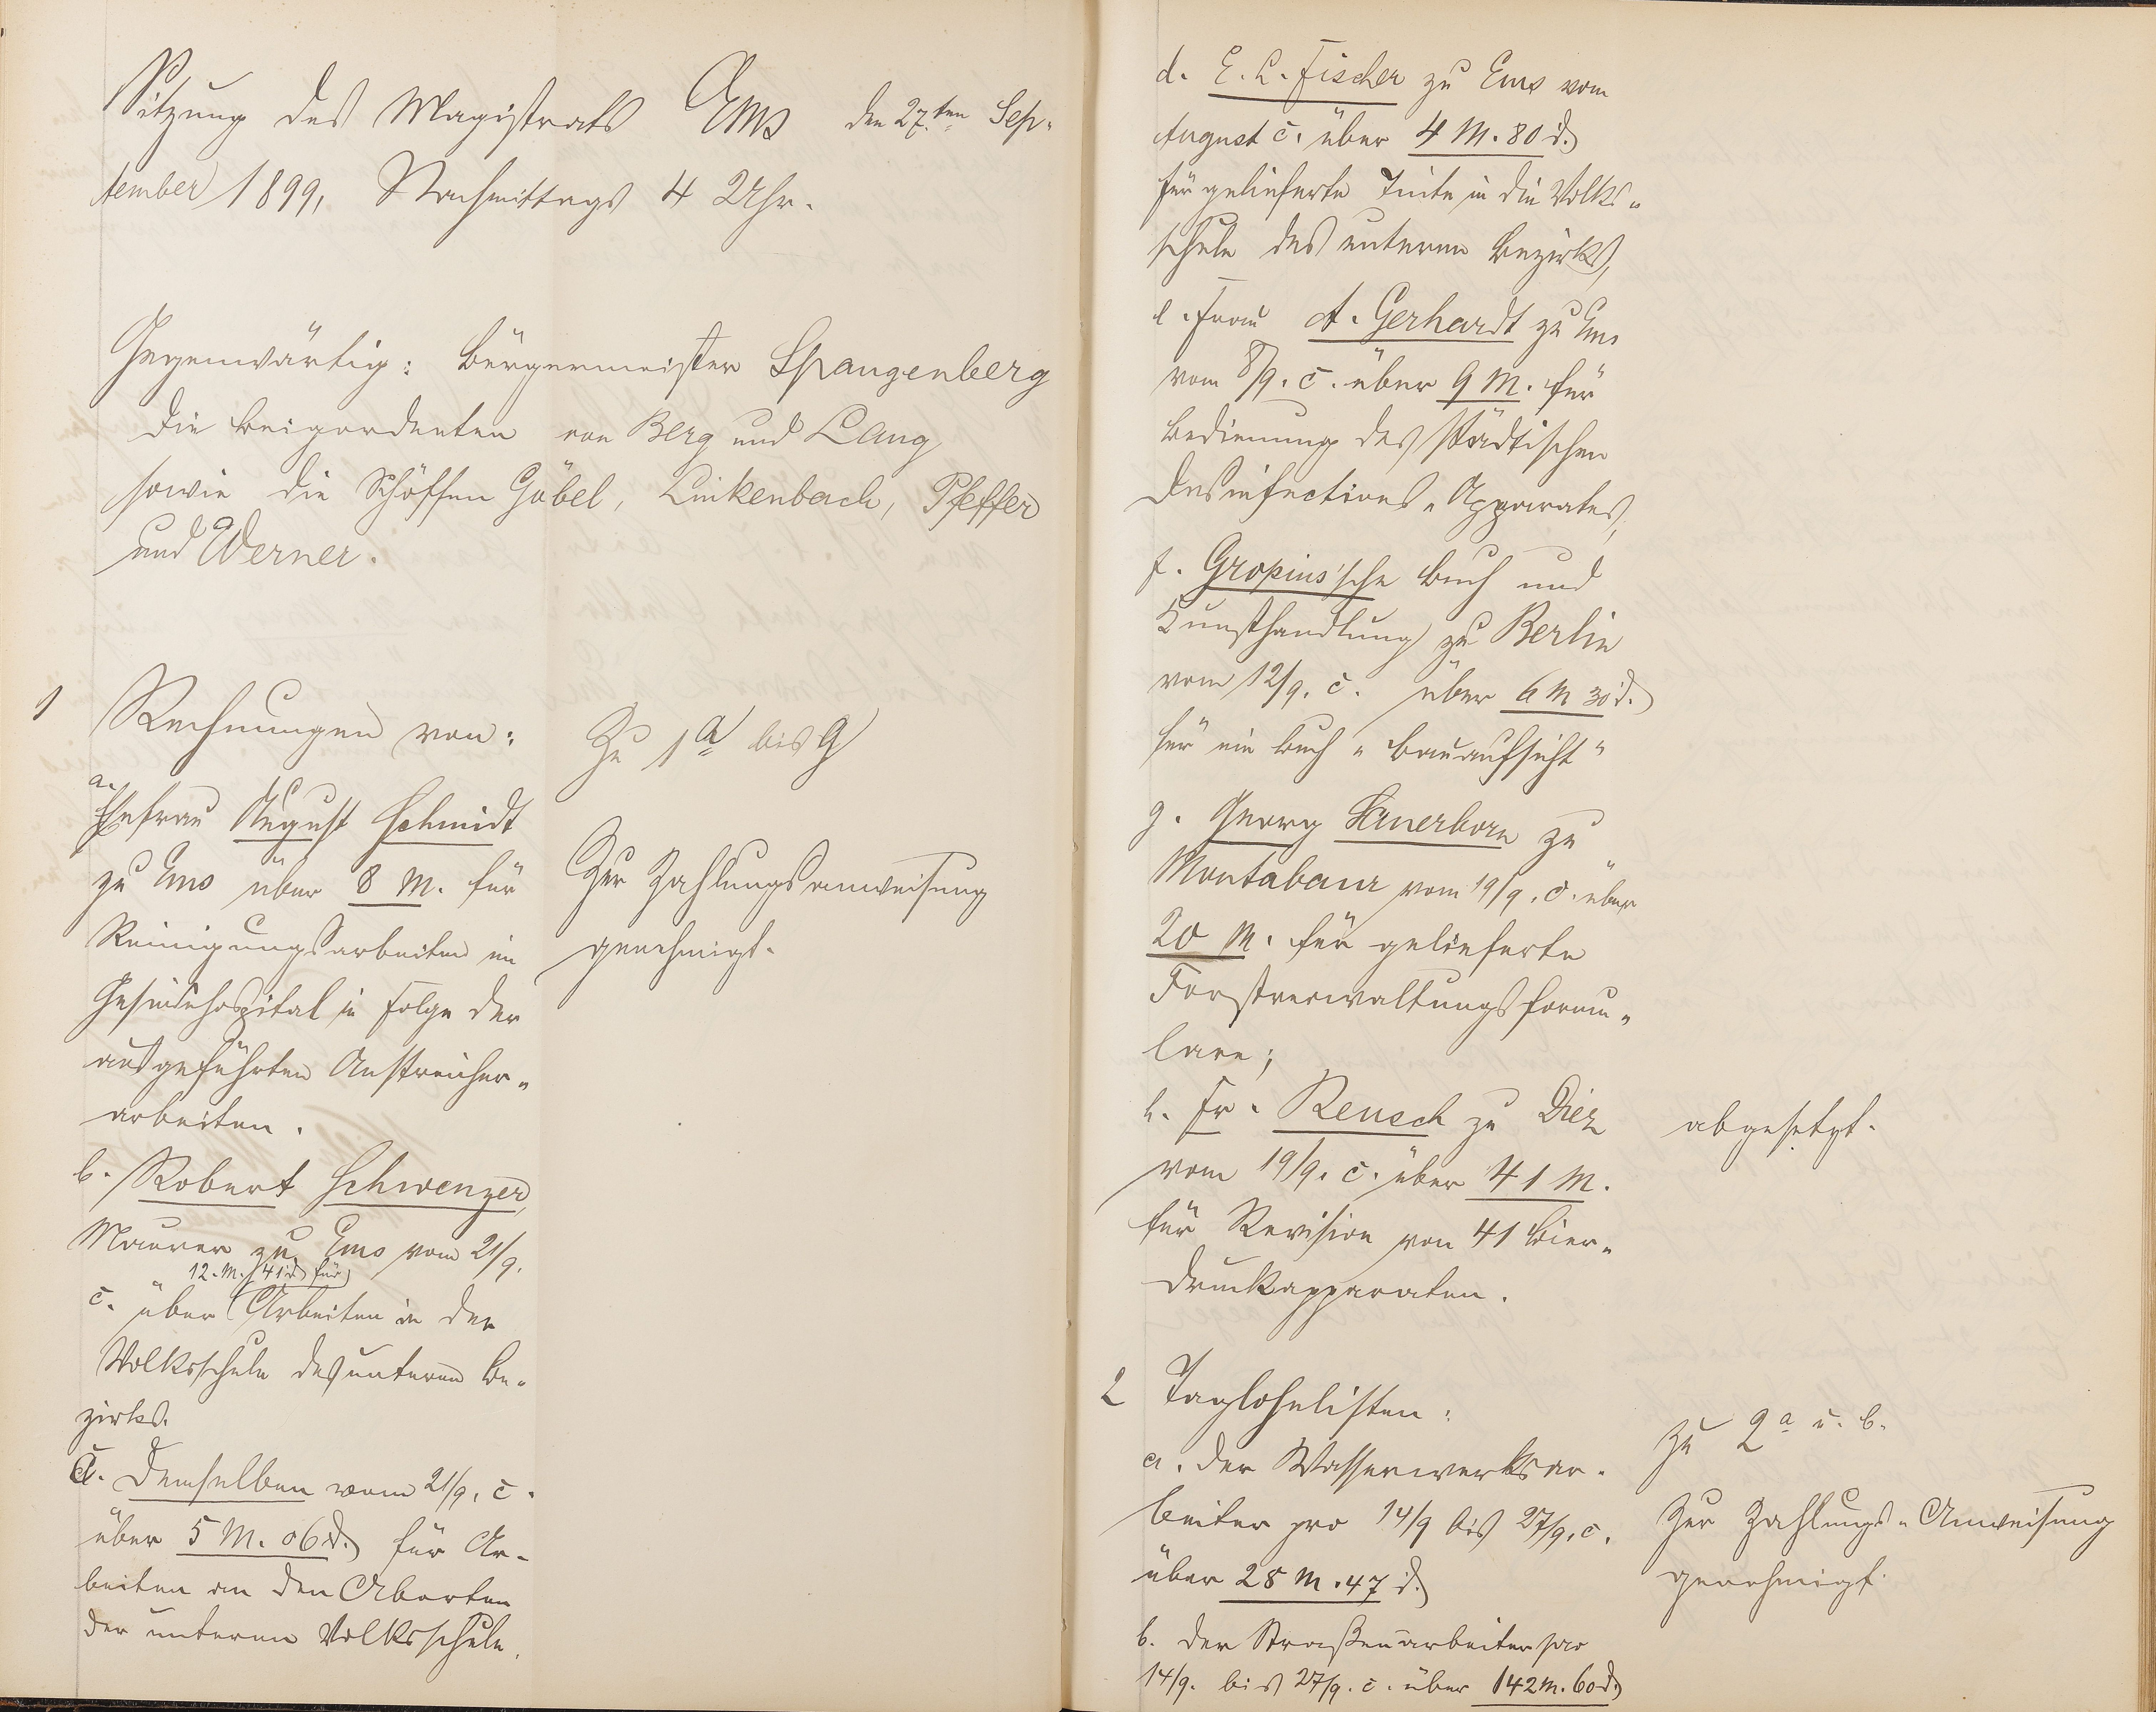 Sitzung des Magistrats Ems den 27.ten Sep-
tember 1899, Nachmittags 4 Uhr.
Gegenwärtig: Bürgermeister Spangenberg
die Beigeordneten von Berg und Lang
sowie die Schöffen Göbel, Linkenbach, Pfeffer
und Werner.
1 Rechnungen von:
a. Ehefrau August Schmidt
zu Ems über 8 M. für
Reinigungsarbeiten im
Gesindehospital in Folge der
ausgeführten Anstreicher-
arbeiten.
b. Robert Schwenzer,
Maurer zu Ems vom 21/9.
12. M. 41 d. für
c. über Arbeiten in der
Volksschule des unteren Be-
zirks.
c. Demselben vom 21/9. c.
über 5 M. 06 d. für Ar-
beiten an den Aborten
der unteren Volksschule.
Zu 1 a bis g
Zur Zahlungsanweisung
genehmigt.
d. E. L. Fischer zu Ems vom
August c. über 4 M. 80 d.
für gelieferte Tinte in die Volks-
schule des unteren Bezirks,
e. Frau A. Gerhardt zu Ems
vom 8/9. c. über 9 M. für
Bedienung des städtischen
Desinfections-Apparates,
f. Gropius'sche Buch und
Kunsthandlung zu Berlin
vom 12/9. c. über 6 M 30 d.
für ein Buch "Bauaufsicht"
g. Georg Sauerborn zu
Montabaur vom 19/9. c. über
20 M. für gelieferte
Forstverwaltungsformu-
lare;
h. Fr. Reusch zu Diez
vom 19/9. c. über 41 M.
für Revision von 41 Bier-
druckapparaten.
abgesetzt.
2 Taglohnlisten:
a. der Wasserwerksar-
beiter pro 14/9 bis 27/9. c.
über 28 M. 47 d.
b. der Straßenarbeiter pro
14/9. bis 27/9. c. über 142 M. 60 d.
Zu 2 a u. b.
Zur Zahlungs-Anweisung
genehmigt.